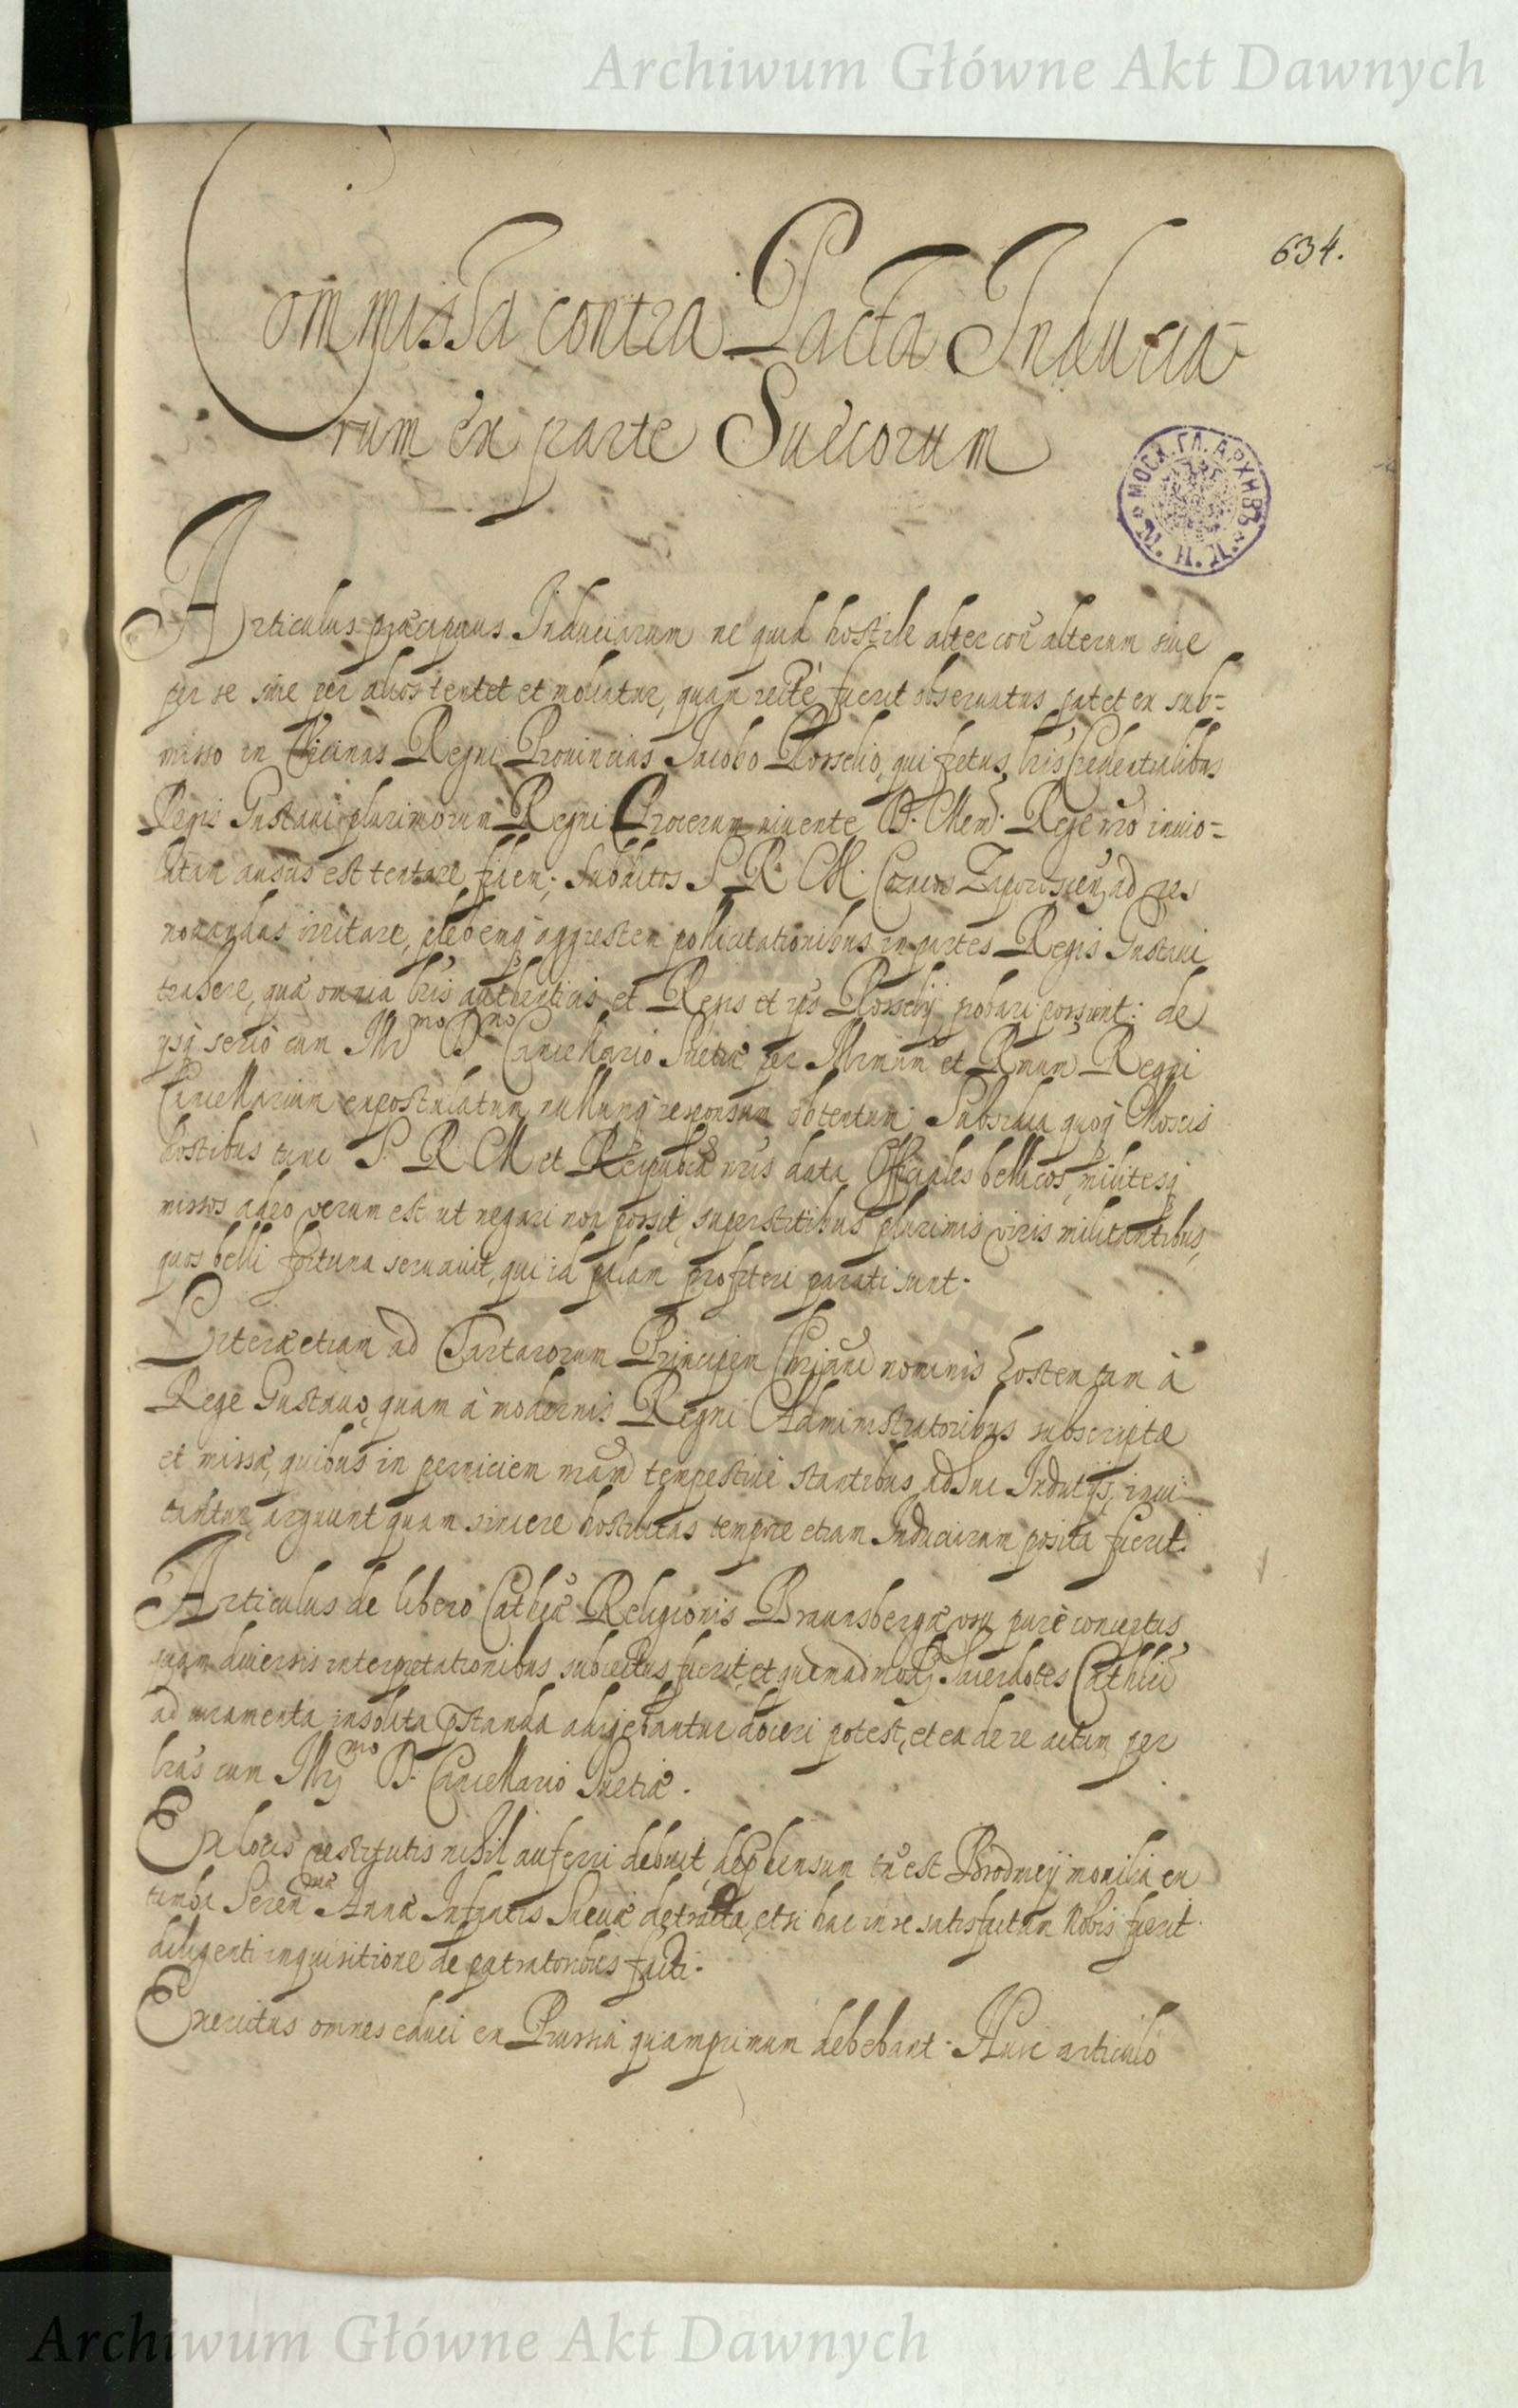 Archiwum Główne Akt Dawnych
634.
Commissa contra Pacta Inducia
rum ex parte Suecorum
МОСК. ГЛ. АРХИВЪ М. И. Д.
Articulus præcipuus Induciarum ne quid hostile alter con̄ alterum siue
per se siue per alios tentet et moliatur, quam rectè fuerit obseruatus patet ex sub-
misso in Vicinas Regni Prouincias Jacobo Rosselio, qui fretus l̃ris Credentialibus
Regis Gustaui plurimorum Regni Procerum viuente D. Mem. Rege n̄ro inuio-
latam ausus est tentare fidem; Subditos S. R. M. Cozacos Zaporouien̄ ad res
nouandas irritare, plebemq̨ aggrestem pollicitationibus in partes Regis Gustaui
trahere, quæ omnia l̃ris authenticis et Regis et ips Rosselij probari possunt: de
ysq̨ seriò cum Ill̄mo Dno Cancellario Suetiæ per Ill̄mum et Rmum Regni
Cancellarium expostulatum nullumq̨ responsum obtentum. Subsidia quoq̨ Moscis
hostibus tunc S. R. M. et Reipublcæ n̄ris data Officiales bellicos, militesq̨
missos adeo verum est ut negari non possit, superstitibus plurimis viris militantibus,
quos belli fortuna seruauit, qui id palam profiteri parati sunt.
Literæ etiam ad Tartarorum Principem Chrijani nominis hostem tam à
Rege Gustauo, quam à modernis Regni Administratoribus subscriptæ
et missæ, quibus in perniciem n̄ram tempestiuè stantibus adhuc Indutijs, inui
tantur, arguunt quam sincere hostilitas tempore etiam Induciarum posita fuerit.
Articulus de libero Cathcæ Religionis Braunsbergæ vsu purè conceptus
quam diuersis interpretationibus subiectus fuerit, et quemadmodũ Sacerdotes Cathlici
ad iuramenta insolita p̄standa adigebantur doceri potest, et ea de re actum per
l̃ras cum Ill̄mo D. Cancellario Suetiæ.
Ex locis restitutis nihil auferri debuit, dephensum tn̄ est Brodnicij monilia ex
tumba Serenmæ Annæ Infantis Sueciæ detracta, etsi hac in re satisfactum Nobis fuerit
diligenti inquisitione de patratoribus facti.
Exercitus omnes educi ex Prussia quamprimum debebant. Huic articulo
Archiwum Główne Akt Dawnych